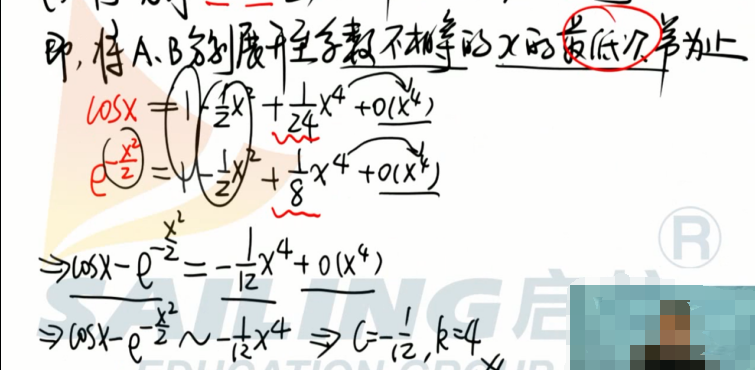 即,将A、B分别展开至系数不相等的x的最低次幂为止
cosx = 1 - 1/2 x² + 1/24 x⁴ + o(x⁴)
e^(-x²/2) = 1 - 1/2 x² + 1/8 x⁴ + o(x⁴)
⇒ cosx - e^(-x²/2) = -1/12 x⁴ + o(x⁴)
⇒ cosx - e^(-x²/2) ~ -1/12 x⁴ ⇒ C = -1/12, k = 4
SAILING启航®
EDUCATION GROUP